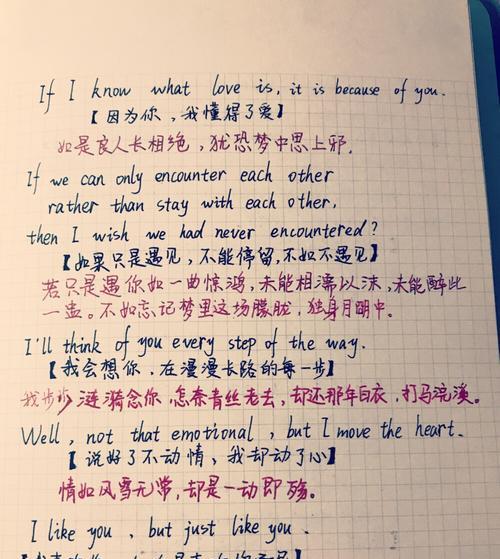 If I know what love is, it is because of you.
【因为你，我懂得了爱】
如是良人长相绝，犹恐梦中思上邪.
If we can only encounter each other
rather than stay with each other,
then I wish we had never encountered?
【如果只是遇见，不能停留，不如不遇见】
若只是遇你如一曲惊鸿，未能相濡以沫，未能醉此
一盅。不如忘记梦里这场朦胧，独身月明中.
I'll think of you every step of the way.
【我会想你，在漫漫长路的每一步】
我步步涟漪念你，怎奈青丝老去，却还那年白衣，打马浣溪。
Well, not that emotional, but I move the heart.
【说好了不动情，我却动了心】
情如风雪无常，却是一动即殇。
I like you, but just like you.